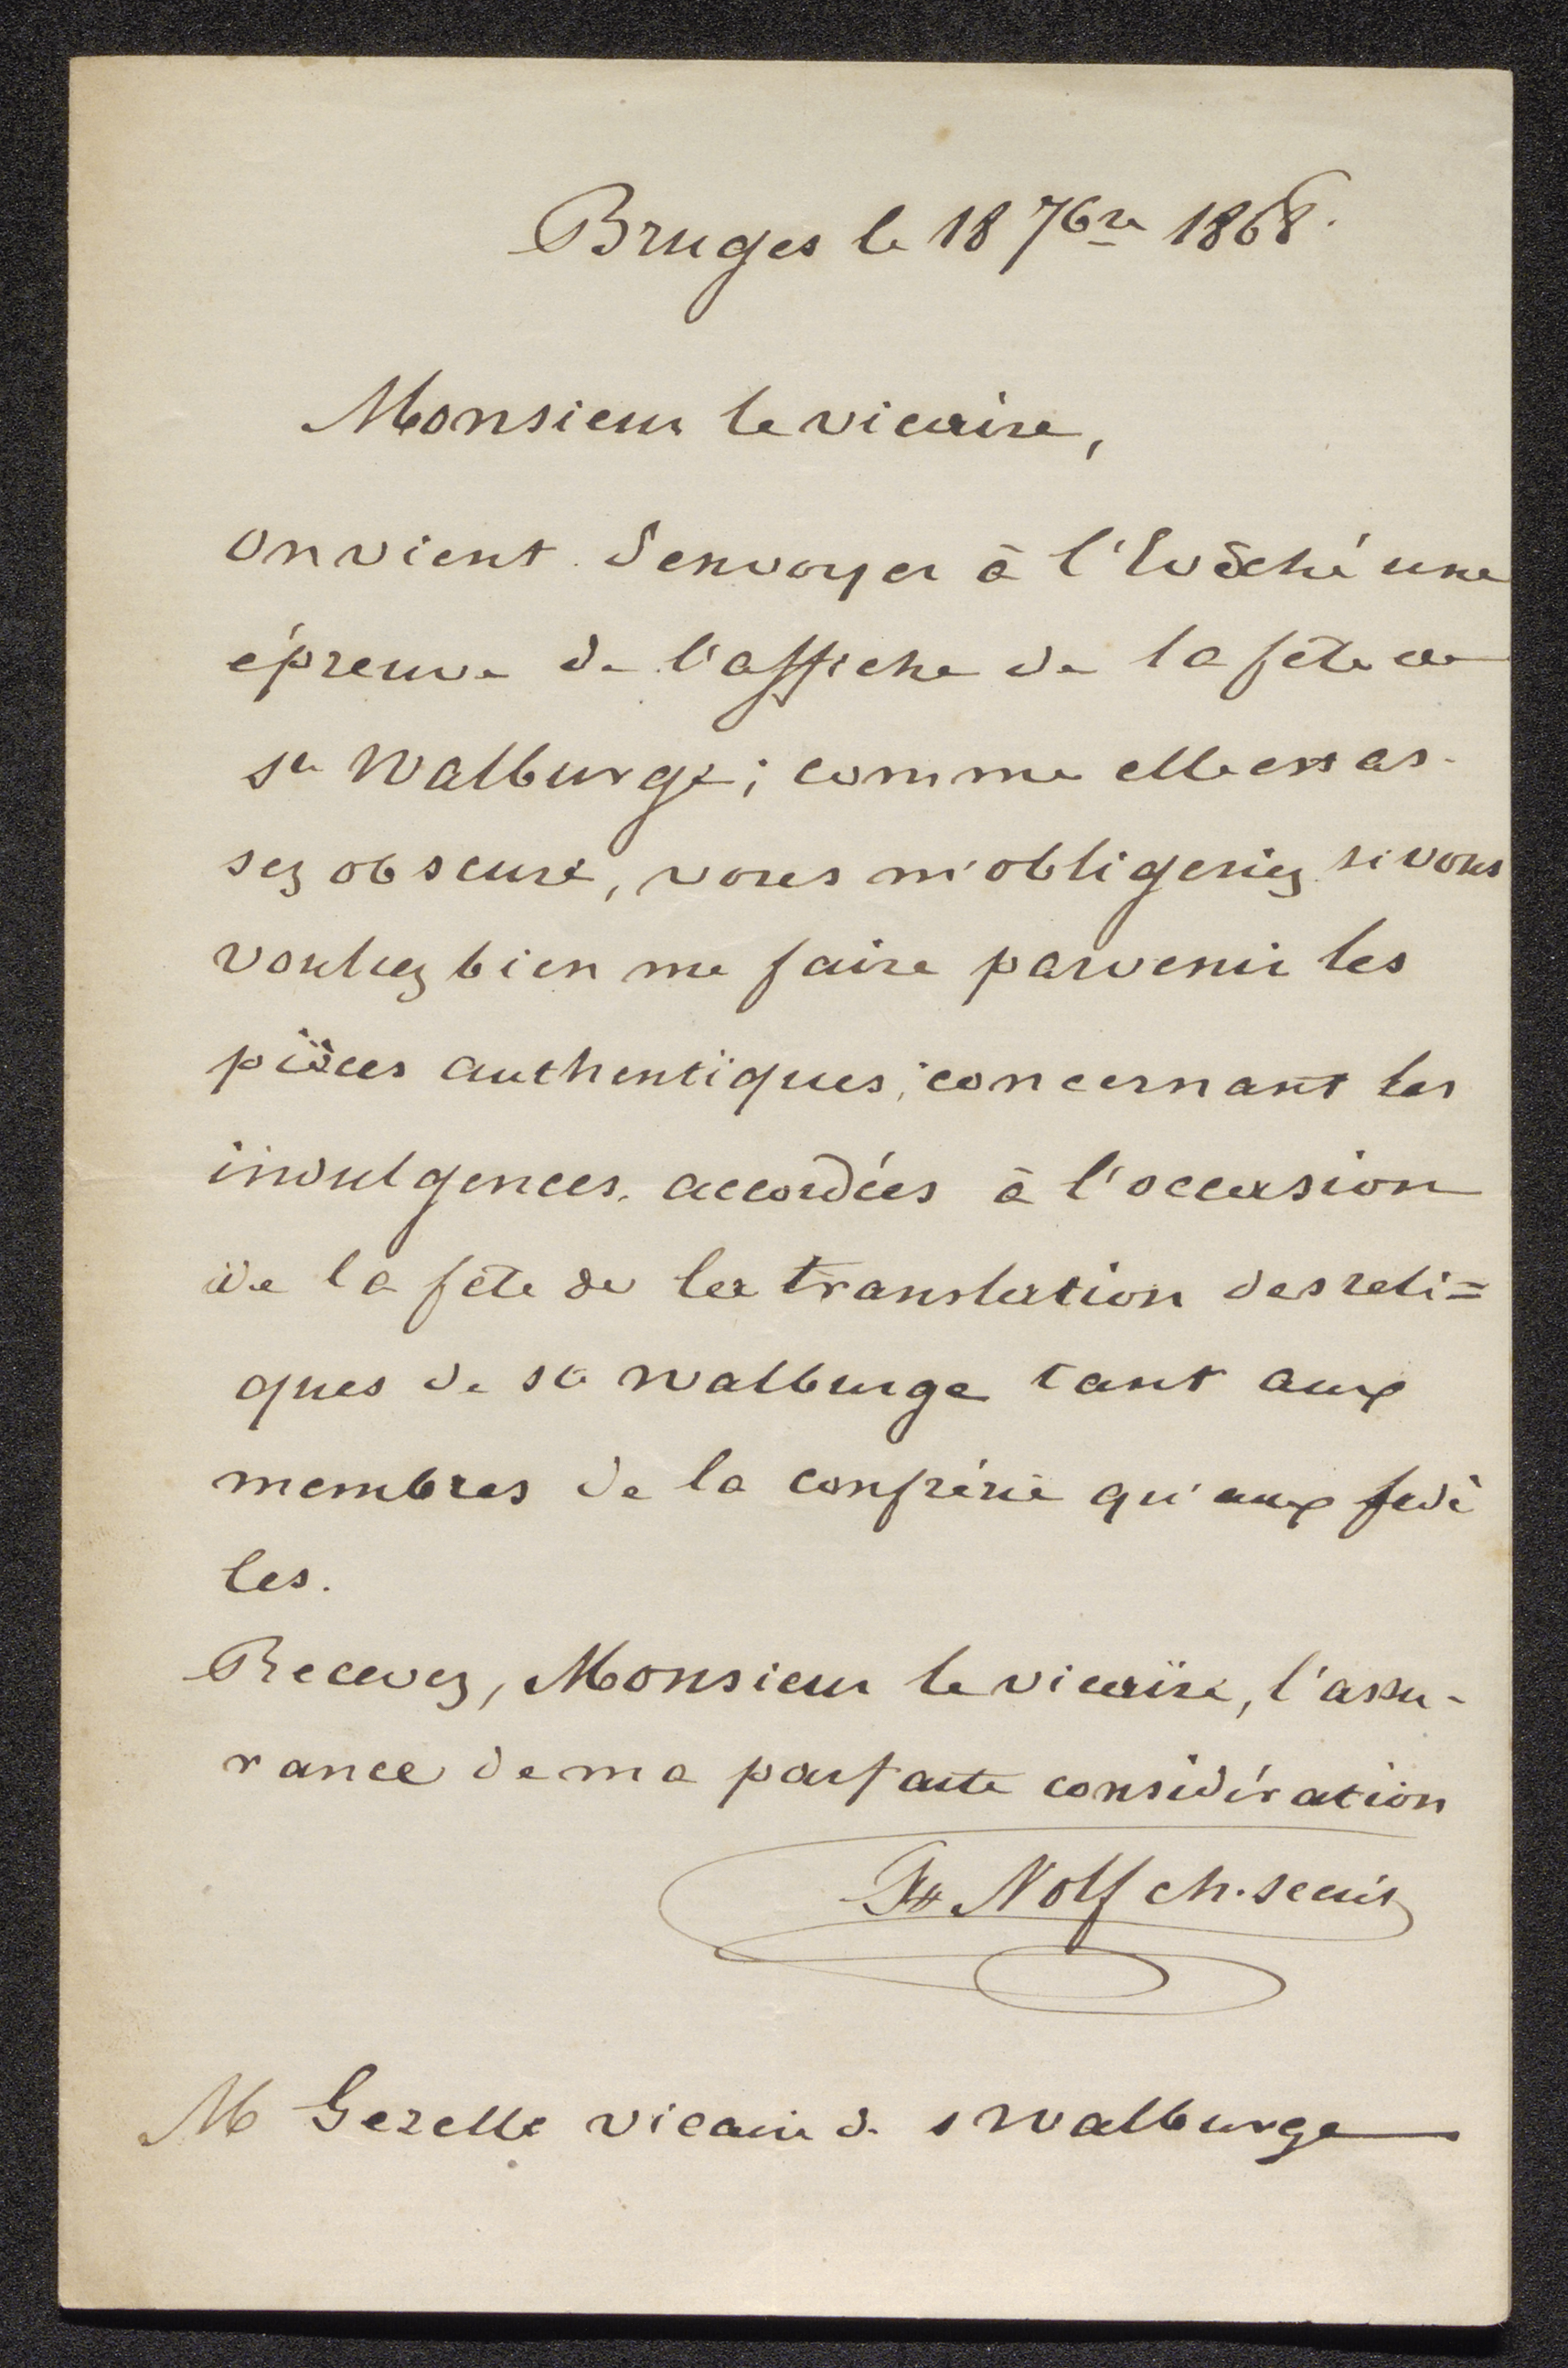 Bruges le 18 7bre 1868.
Monsieur le vicaire,
on vient d'envoyer à l'Evêché une
épreuve de l'affiche de la fête de
Ste Walburge; comme elle est as-
sez obscure, vous m'obligeriez si vous
vouliez bien me faire parvenir les
pièces authentiques concernant les
indulgences accordées à l'occasion
de la fête de la translation des reli=
ques de Ste Walburge tant aux
membres de la confrérie qu'aux fidè
les.
Recevez, Monsieur le vicaire, l'assu-
rance de ma parfaite considération
Nolf ch. secrét
M Gezelle vicaire d. s Walburge